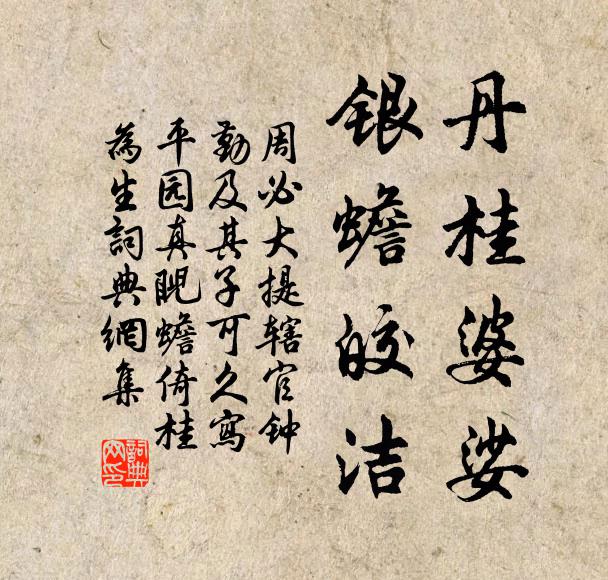 丹桂婆娑
银蟾皎洁
周必大提辖官钟
勤及其子可久寫
平园真贶蟾倚桂
為生詞典網集
詞典
网印